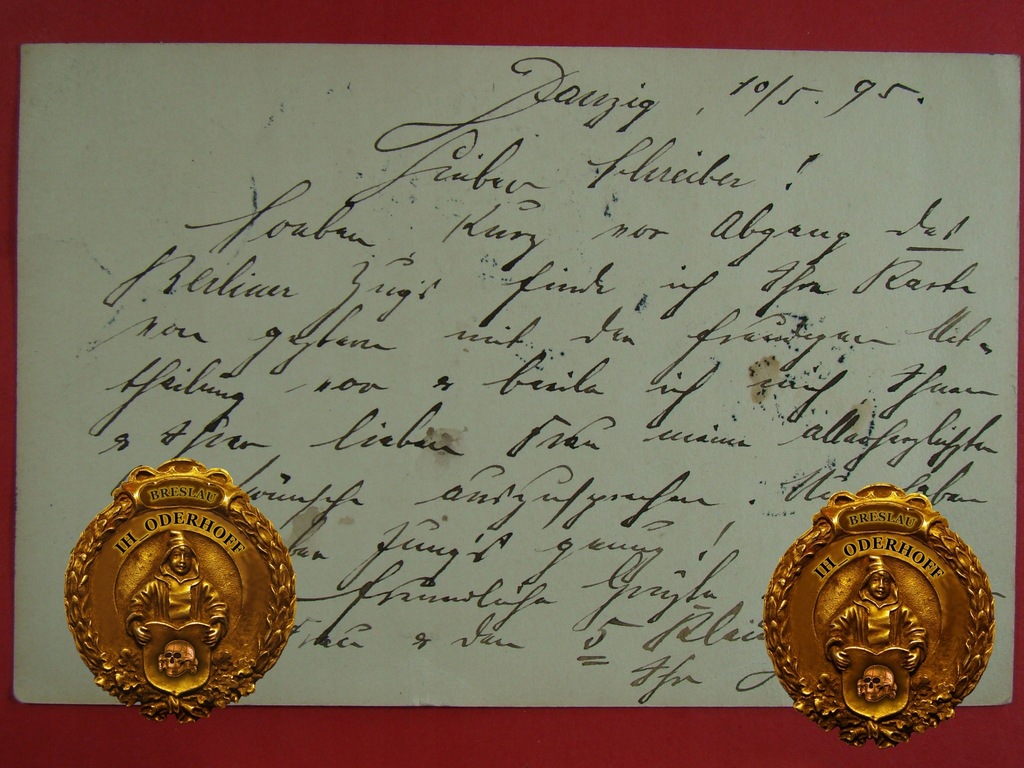 Danzig, 10/5. 95.
Lieber Schreiber!
Soeben kurz vor Abgang des
Berliner Zugs finde ich Ihre Karte
von gestern mit der freudigen Mit-
theilung vor & beeile ich mich Ihnen
& Ihrer lieben Frau meine allerherzlichsten
wünsche auszusprechen. Nu haben
Jung's genug!
freundliche Grüße
Frau & den 5
Ihr
BRESLAU
IH_ODERHOFF
BRESLAU
IH_ODERHOFF